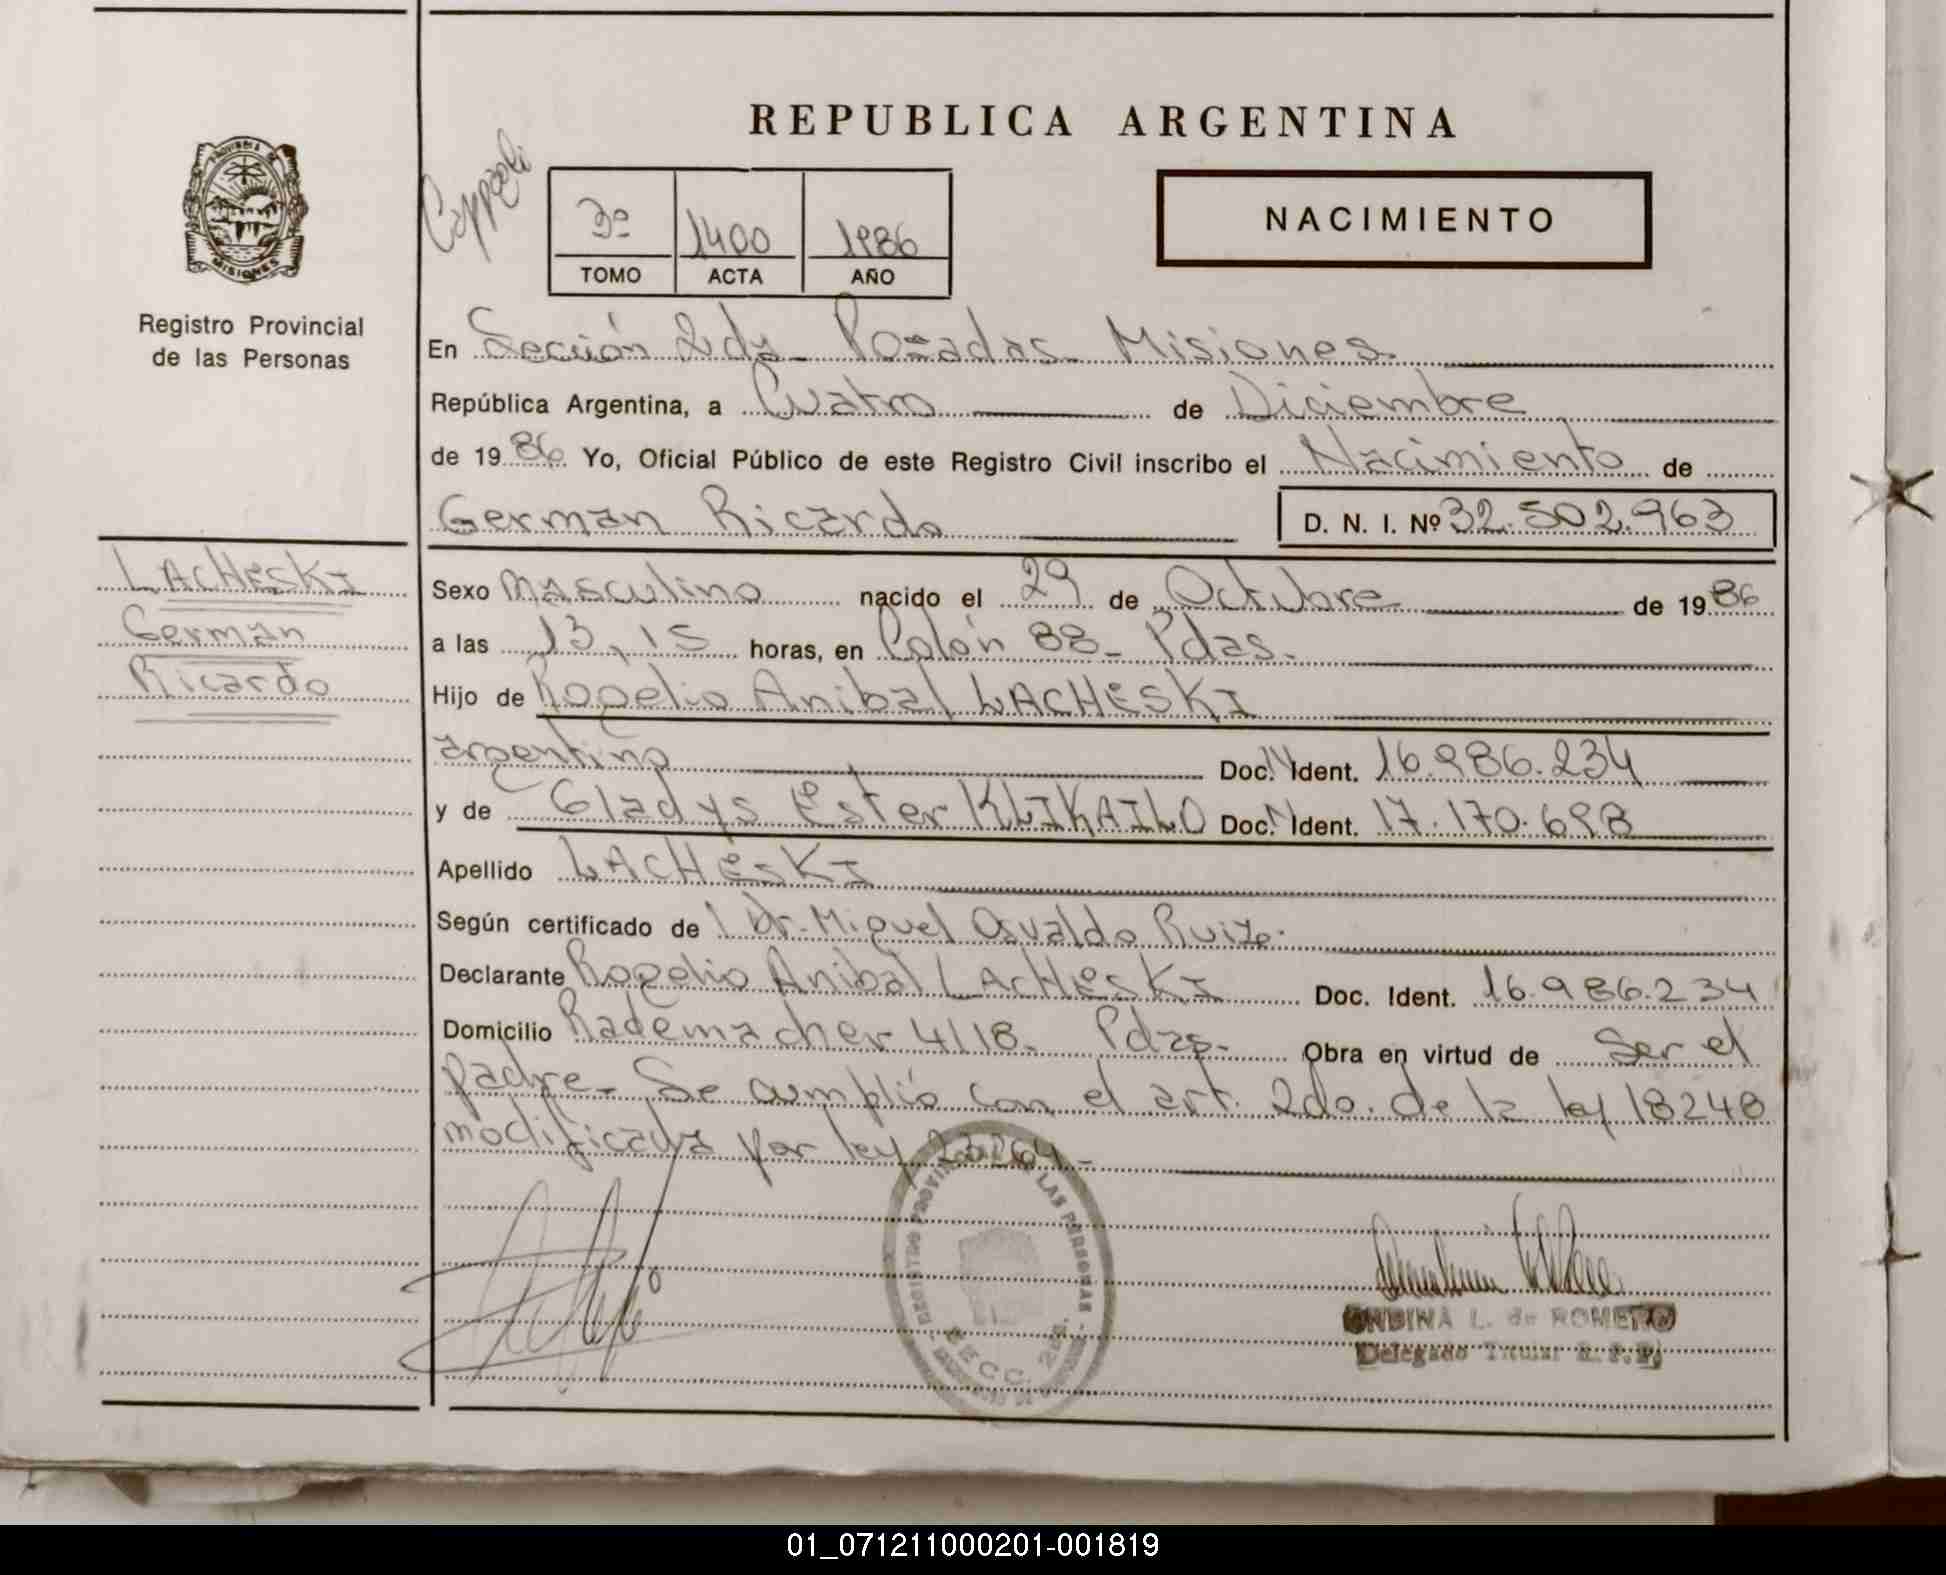 REPUBLICA ARGENTINA
PROVINCIA DE
MISIONES
Registro Provincial
de las Personas
3º 1400 1986
TOMO ACTA AÑO
NACIMIENTO
En Sección 2da- Posadas- Misiones-
República Argentina, a Cuatro de Diciembre
de 1986 Yo, Oficial Público de este Registro Civil inscribo el Nacimiento de
German Ricardo D. N. I. Nº 32.502.963
LACHESKI
German
Ricardo
Sexo masculino nacido el 29 de Octubre de 1986
a las 13,15 horas, en Colón 88- Pdas.
Hijo de Rogelio Anibal LACHESKI
argentino Doc. Ident. 16.986.234
y de Gladys Ester KLIKAILO Doc. Ident. 17.170.698
Apellido LACHESKI
Según certificado de l Dr. Miguel Osvaldo Ruiz.
Declarante Rogelio Anibal LACHESKI Doc. Ident. 16.986.234
Domicilio Rademacher 4118. Pdas. Obra en virtud de Ser el
padre- Se cumplió con el art. 2do. de la ley 18248
modificada por ley 23264-
REGISTRO PROVINCIAL LAS PERSONAS
SECC. 2da.
ONDINA L. de ROMERO
Delegado Titular R.P.P.
01_071211000201-001819